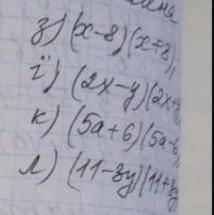 з) (x-8)(x+8),
ї) (2x-y)(2x+
к) (5a+6)(5a-6),
л) (11-3y)(11+3y